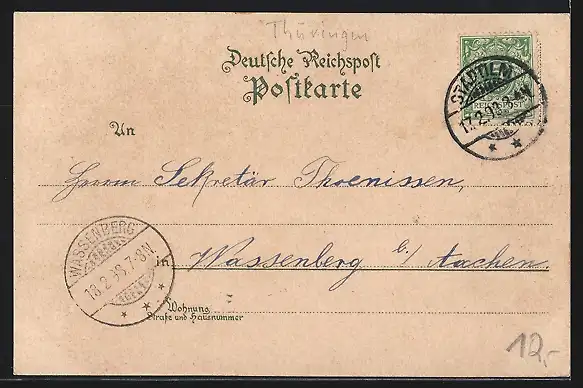 Thüringen
Deutsche Reichspost
Postkarte
REICHSPOST
17.2.98
An
Herrn Sekretär Thoenissen,
WASSENBERG
18.2.98.7-8V.
in Wassenberg b/ Aachen.
Wohnung
Straße und Hausnummer
12,-